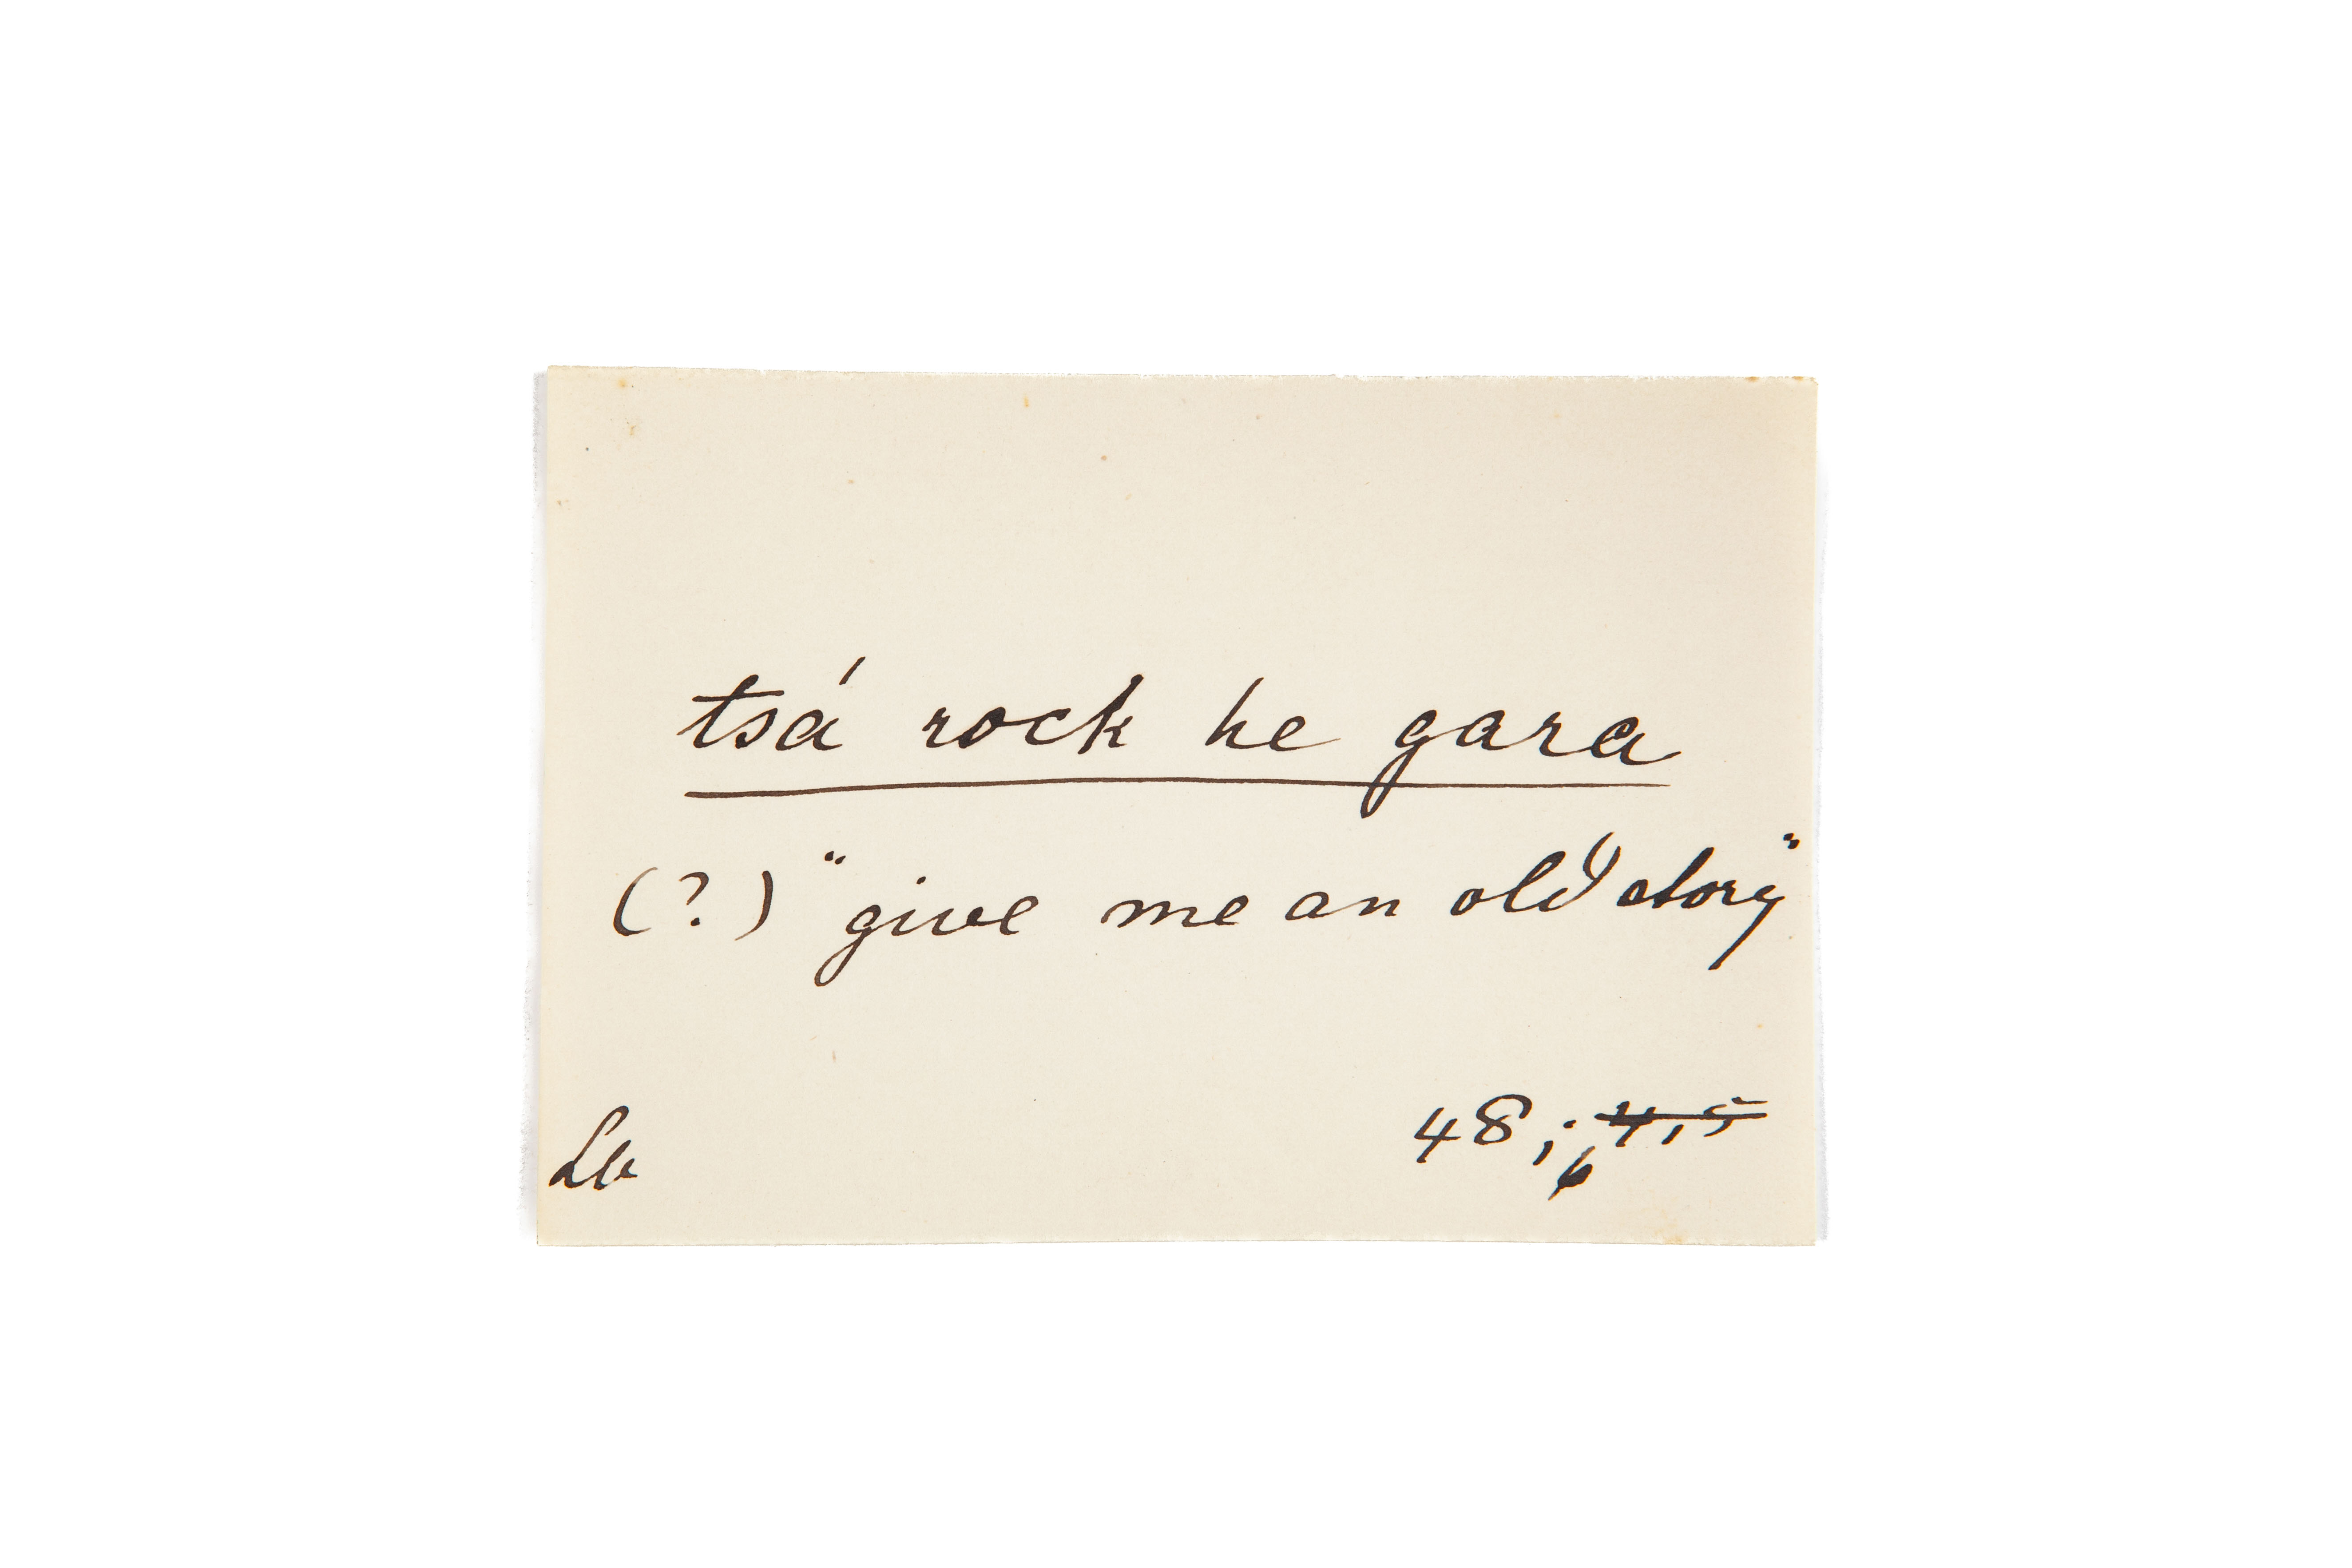 tsá rock he gara
(?) "give me an old story"
Lb 48; 6 4,5